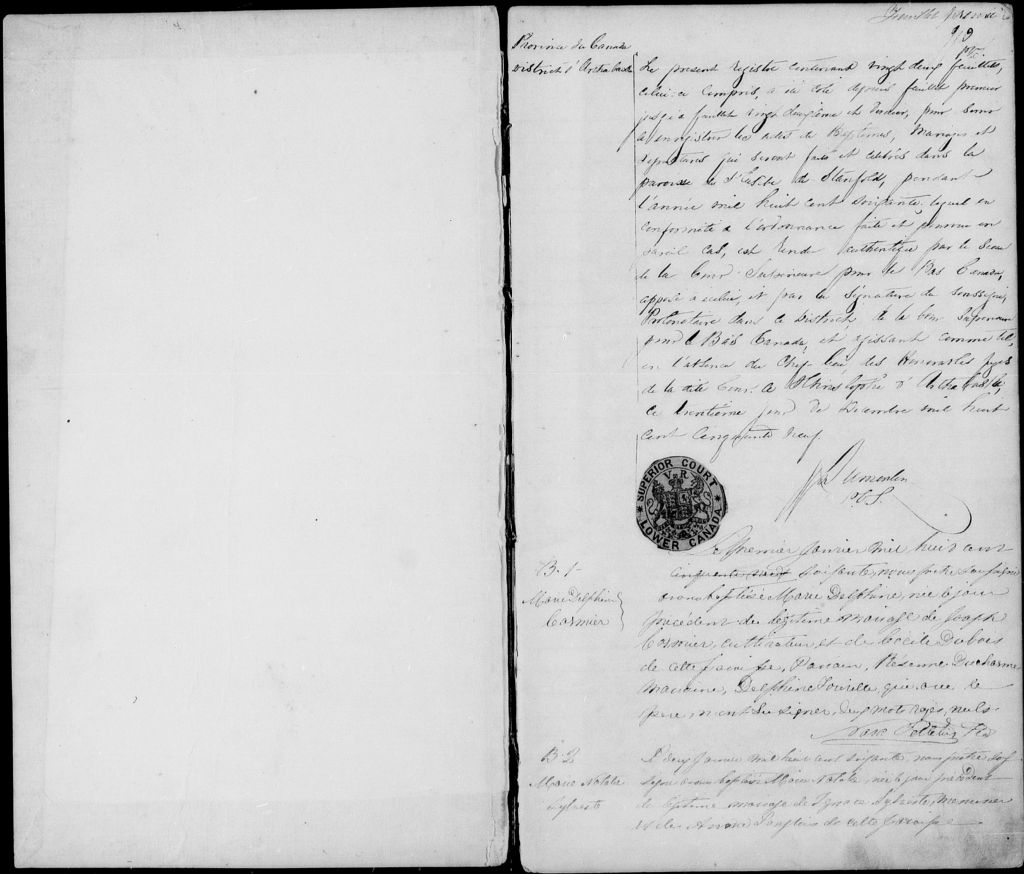 Feuillet premier
Province du Canada
District d'Arthabaska
Le présent registre contenant vingt deux feuillets,
celui-ci compris, a été coté depuis feuillet premier
jusqu'à feuillet vingt deuxième et dernier, pour servir
à enregistrer les actes de Baptêmes, Mariages et
sépultures qui seront faits et célébrés dans la
paroisse de St Eusèbe de Stanfold, pendant
l'année mil huit cent soixante, lequel en
conformité à l'ordonnance faite et pourvue en
pareil cas, est rendu authentique par le Sceau
de la Cour Supérieure pour le Bas Canada,
apposé à icelui, et par la signature du soussigné,
Protonotaire dans ce District, de la Cour Supérieure
pour le Bas Canada, et agissant comme tel,
en l'absence du Chef-lieu des Honorables Juges
de la dite Cour. A St Christophe d'Arthabaska,
ce trentième jour de Décembre mil huit
cent cinquante neuf.
P.C.S.
SUPERIOR COURT
V R
LOWER CANADA
B. 1
Marie Delphine
Cormier
Le premier Janvier mil huit cent
cinquante neuf soixante, nous prêtre soussigné
avons baptisé Marie Delphine, née le jour
précédent du légitime mariage de Joseph
Cormier, cultivateur et de Cécile Dubois
de cette paroisse, Parrain, Ducharme
Marraine, Delphine qui avec le
père, n'ont su signer, deux mots rayés, nuls.
Ptre
B 2
Marie Natalie
Sylvestre
Le deux Janvier mil huit cent soixante, nous prêtre sous
signé avons baptisé Marie Natalie née le jour précédent
du légitime mariage de Ignace Sylvestre, Menuisier
et de Langlois de cette paroisse